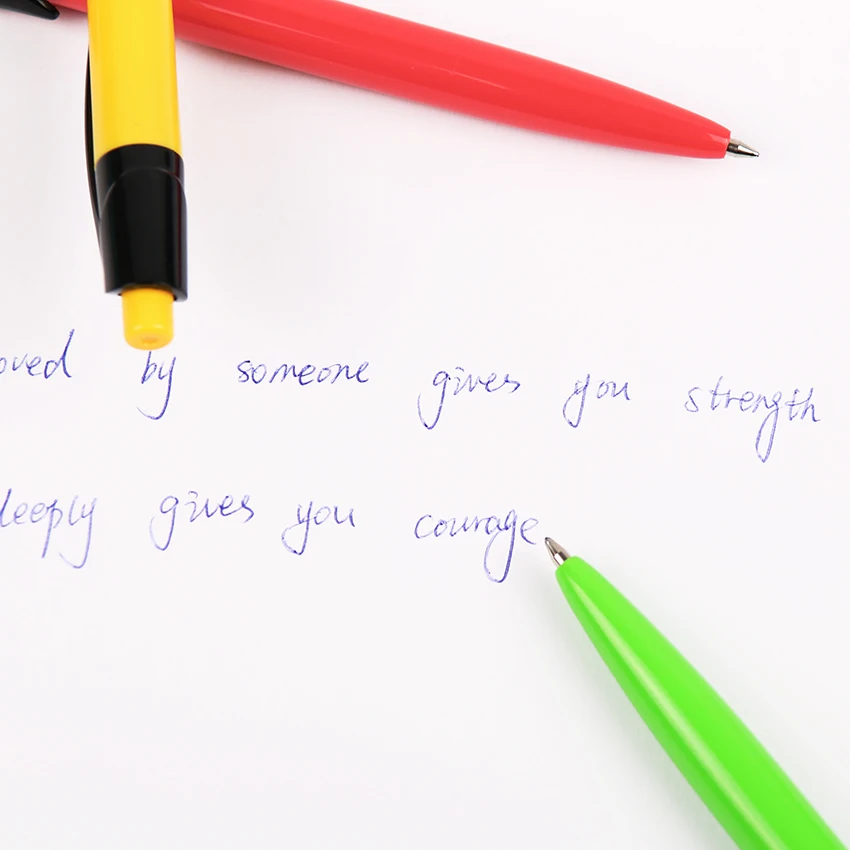 oved by someone gives you strength
deeply gives you courage